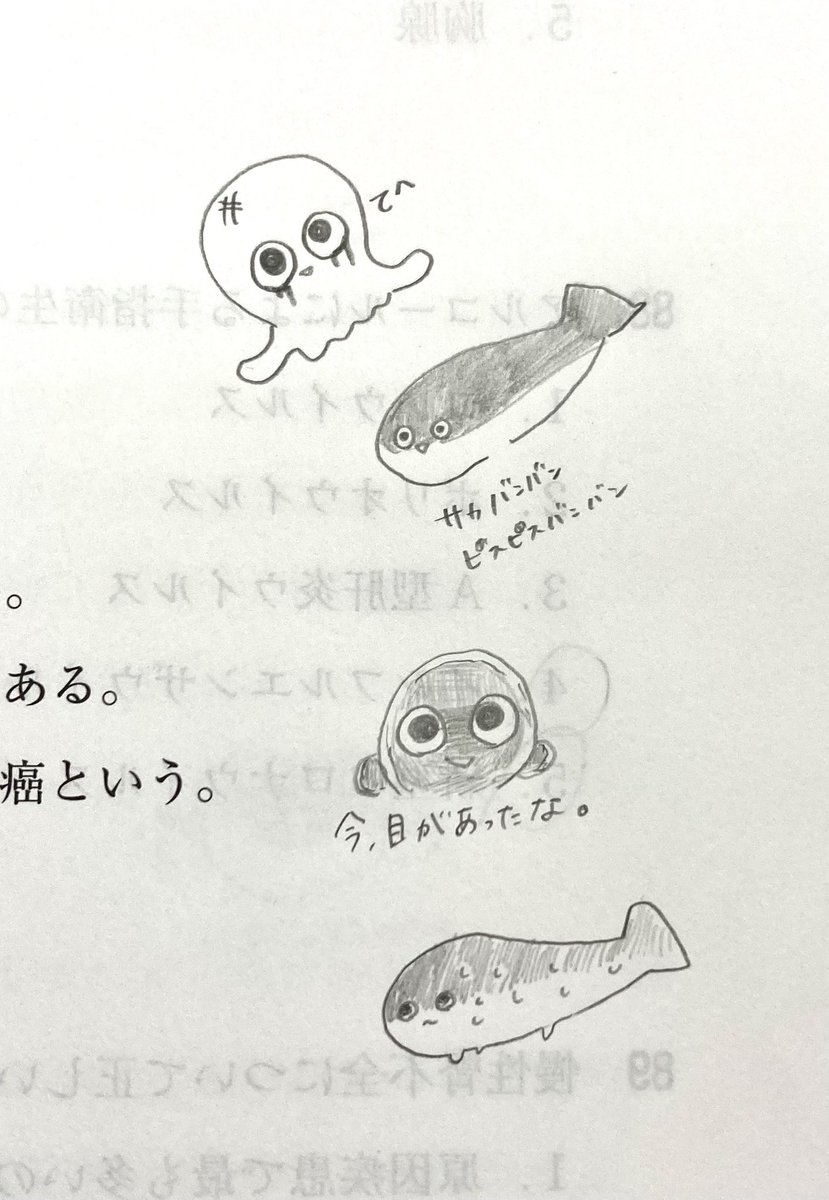 5. 胸腺
てへ
88 アルコールによる手指衛生の
1. ウイルス
2. ポリオウイルス
サカバンバン
ピスピスバンバン
3. A型肝炎ウイルス
。
4. フルエンザウ
ある。
5. ロナウ
癌という。
今、目があったな。
89 慢性腎不全について正しい
1. 原因疾患で最も多いの